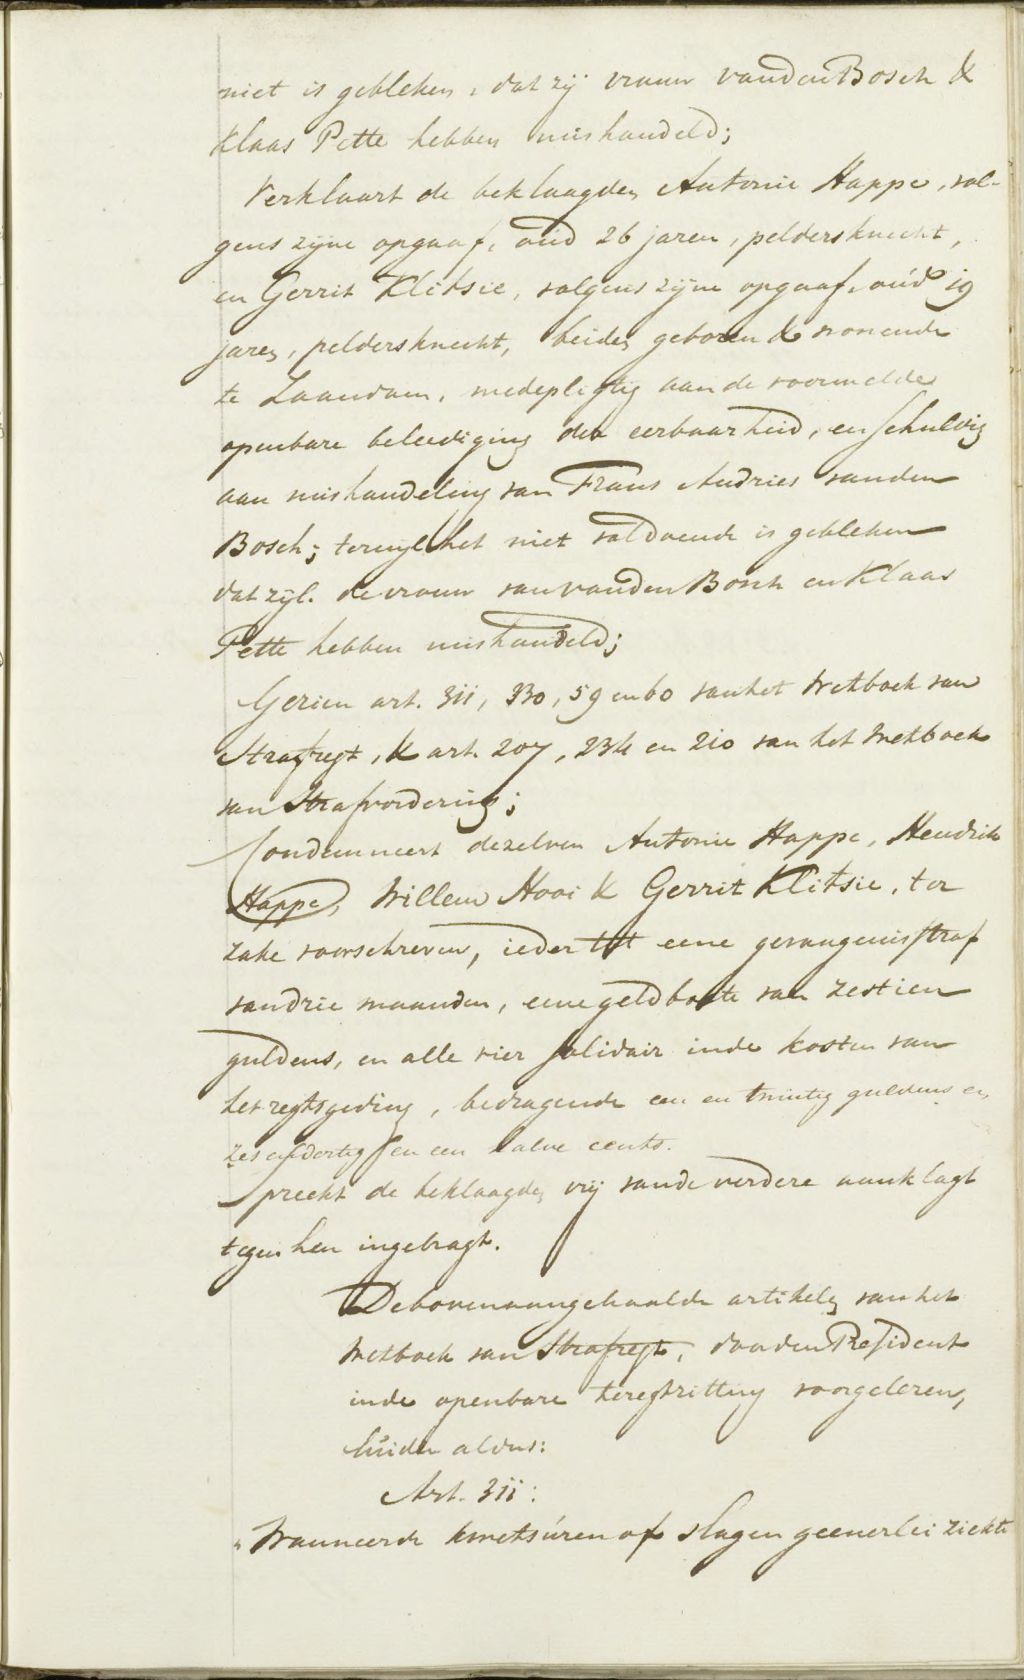 niet is gebleken, dat zij vrouw van den Bosch &
Klaas Pette hebben mishandeld;
Verklaart de beklaagden Antonie Happe, vol-
gens zijne opgaaf, oud 26 jaren, peldersknecht,
en Gerrit Klitsie, volgens zijne opgaaf, oud 19
jaren, peldersknecht, beiden geboren & wonende
te Zaandam, medepligtig aan de voormelde
openbare beleediging der eerbaarheid, en schuldig
aan mishandeling van Frans Andries van den
Bosch; terwijl het niet voldoende is gebleken
dat zijl. de vrouw van van den Bosch en Klaas
Pette hebben mishandeld;
Gezien art. 311, 330, 59 en 60 van het Wetboek van
Strafregt, & art. 207, 234 en 210 van het Wetboek
van Strafvordering;
Condemneert dezelven Antonie Happe, Hendrik
Happe, Willem Hooi & Gerrit Klitsie, ter
zake voorschreven, ieder tot eene gevangenisstraf
van drie maanden, eene geldboete van zestien
guldens, en alle vier solidair in de kosten van
het regtsgeding, bedragende een en twintig guldens en
zes en dertig en een halve cents.
Spreekt de beklaagden vrij van de verdere aanklagt
tegen hen ingebragt.
De bovenaangehaalde artikelen van het
Wetboek van Strafregt, door den President
in de openbare teregtzitting voorgelezen,
luiden aldus:
Art. 311:
"Wanneer de kwetsuren of slagen geenerlei ziekte